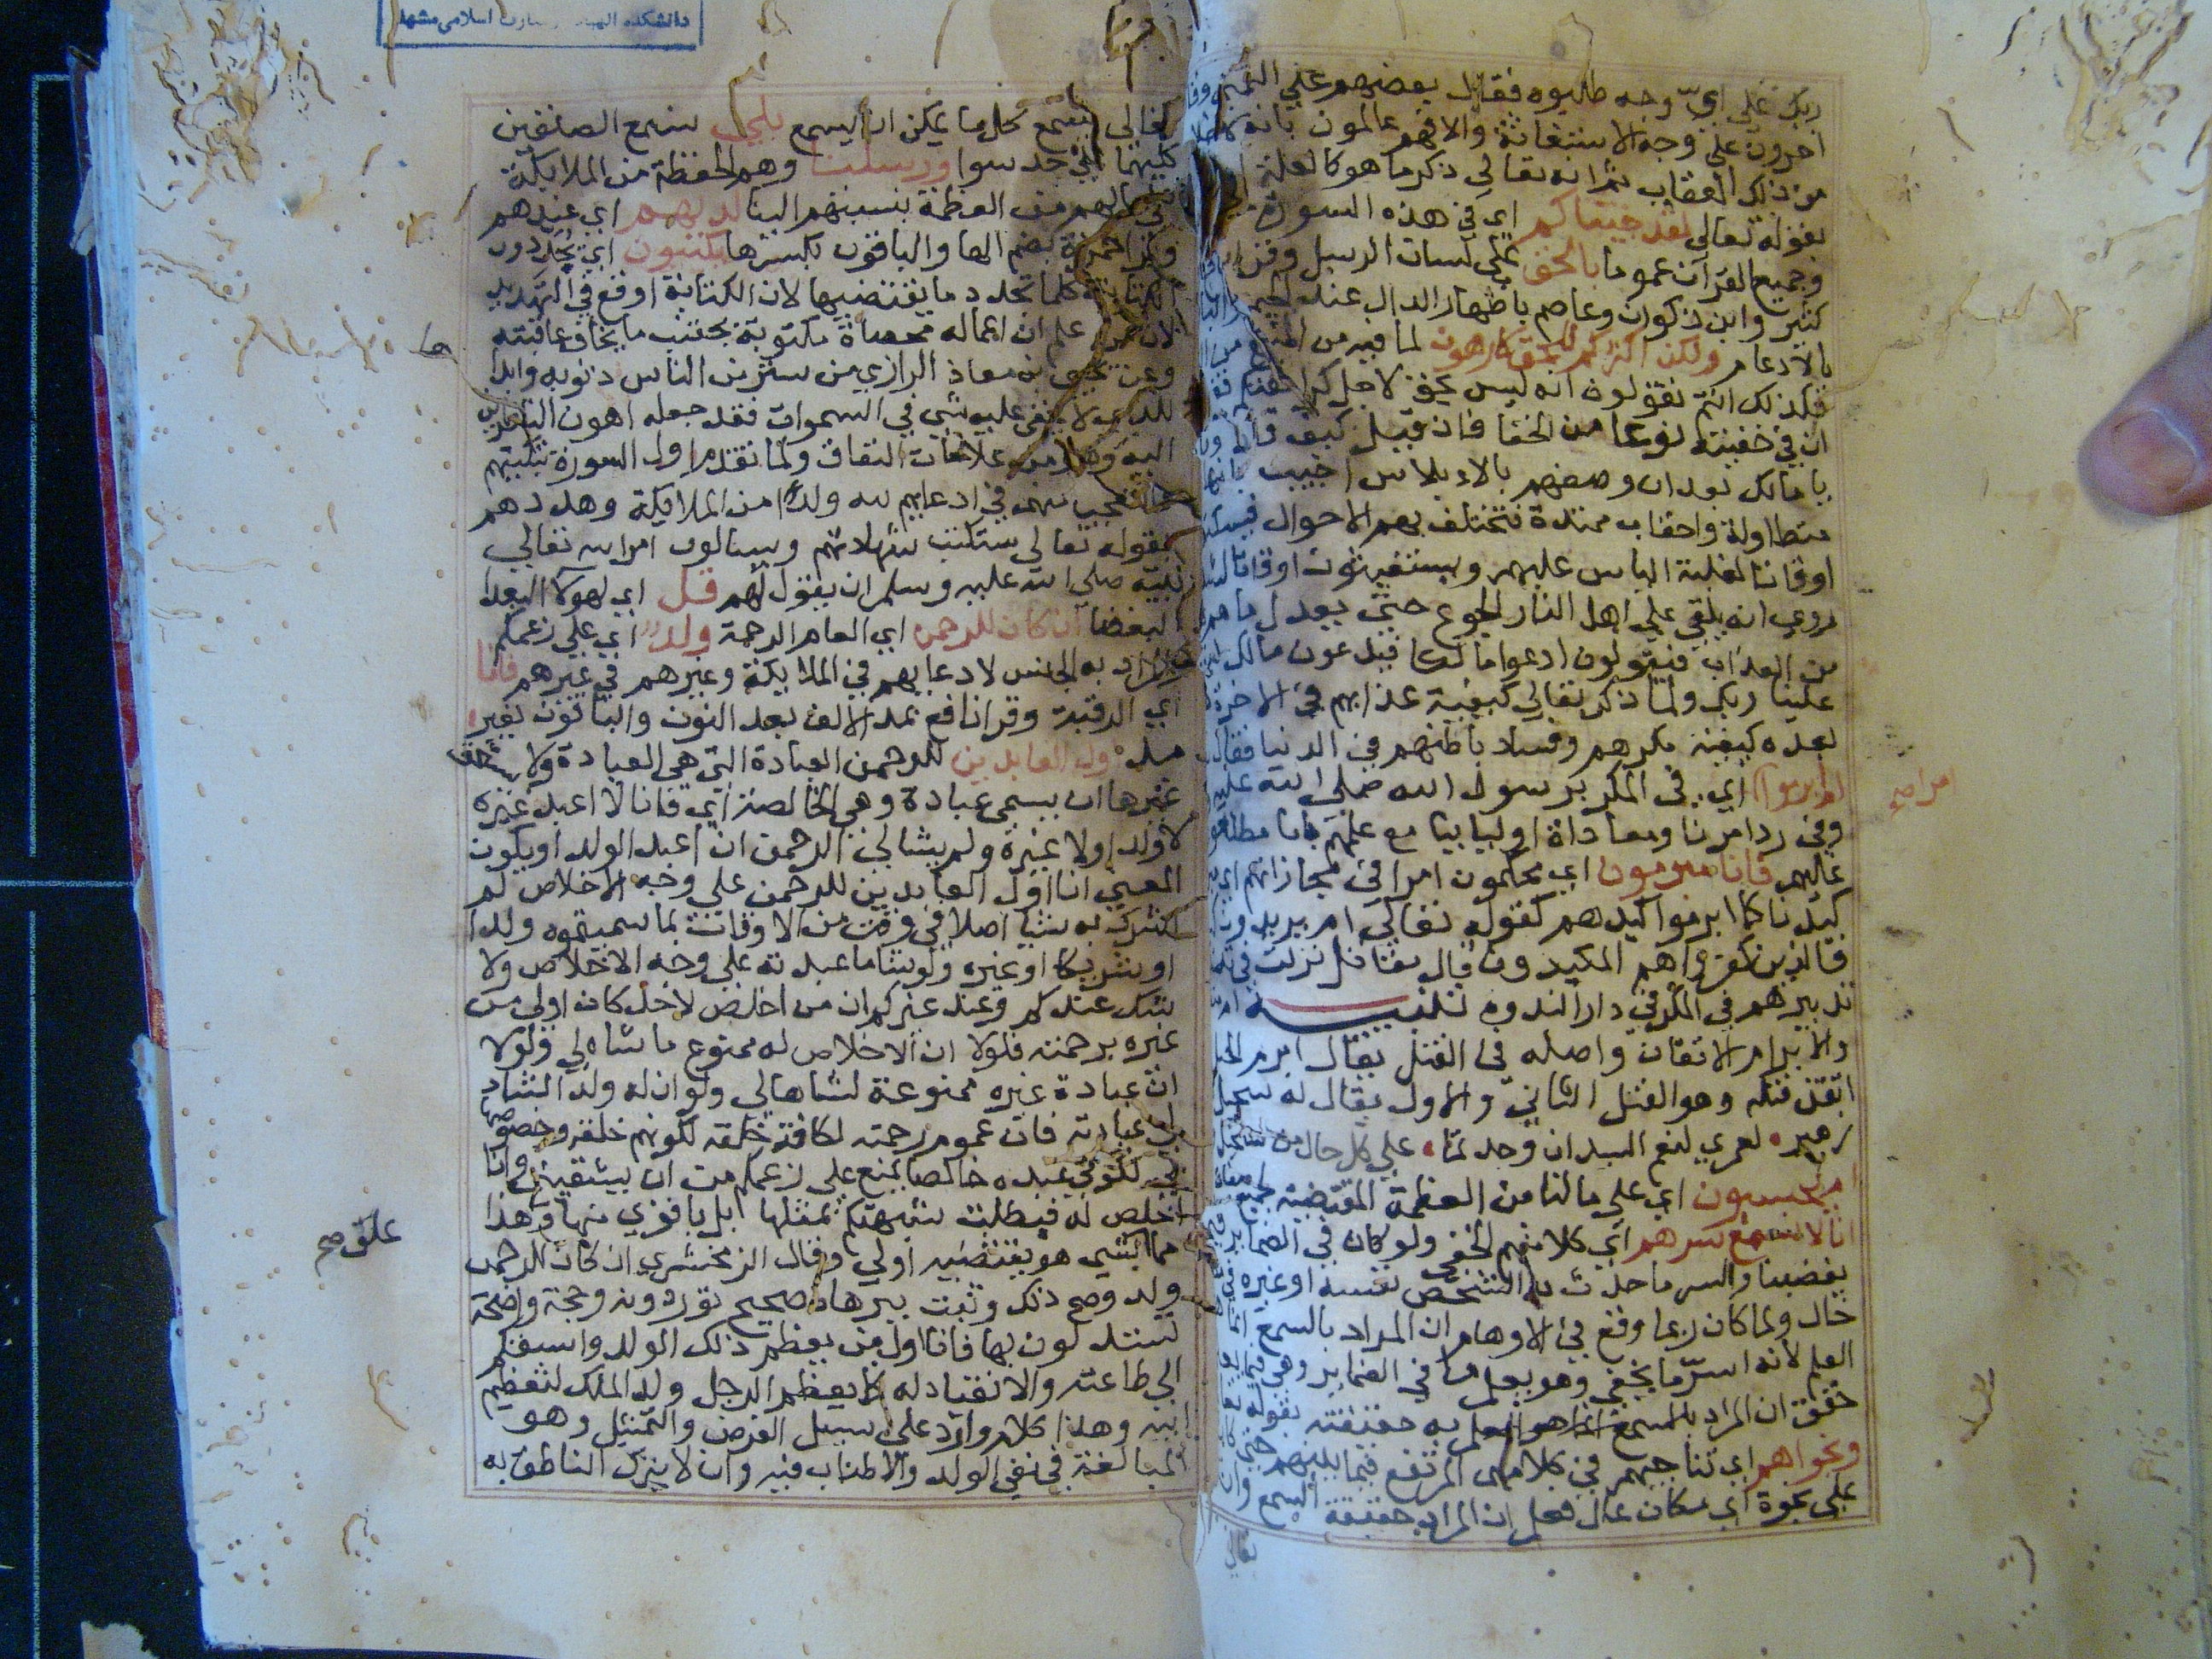 ربك على اي وجه طلبوه فقال بعضهم على التمني وقا
اخرون على وجه الاستغاثة والا فهم عالمون بانه لا خلا
من ذلك العقاب ثم انه تعالى ذكر ما هو كالعلة
بقوله تعالى لقد جيناكم اي في هذه السورة
وجميع القرآن عموما بالحق على لسان الرسل وقرا
كثير وابن ذكوان وعاصم باظهار الدال عند الجيم
بالادغام ولكن اكثركم للحق كارهون لما فيه من
فلذلك انتم تقولون انه ليس بحق لاجل كراهتكم
ان في حقيته نوعا من الخفا فان قيل كيف قال
يا مالك بعد ان وصفهم بالابلاس اجيب بانها
متطاولة واحقاب ممتدة فتختلف بهم الاحوال
اوقاتا لغلبة الياس عليهم ويستغيثون اوقاتا
روي انه يلقى على اهل النار الجوع حتى يعدل ما هم
من العذاب فيقولون ادعوا مالكا فيدعون مالك
علينا ربك ولما ذكر تعالى كيفية عذابهم في الاخرة
بعده كيفية مكرهم وفساد باطنهم في الدنيا فقال
ام ابرموا اي في المكر برسول الله صلى الله عليه
امرا صح
وفي رد امرنا ومعاداة اوليايينا مع علمهم بانا مطلعو
عليهم فانا مبرمون اي محكمون امرا في مجازاتهم اي
كيدنا كما ابرموا كيدهم كقوله تعالى ام يريدون
فالذين كفروا هم المكيدون قال مقاتل نزلت في
تدبيرهم في المكر في دار الندوة تنبيه
والابرام الاتقان واصله في الفتل يقال ابرم الحبل
اتقن فتله وهو الفتل الثاني والاول يقال له سحيل
زهير لعمري لنعم السيدان وجدتما على كل حال من
ام يحسبون اي على ما لنا من العظمة المقتضية لجميع
انا لا نسمع سرهم اي كلامهم الخفي ولو كان في الضماير
يغضبنا والسر ما حدث به الشخص نفسه او غيره في
خال ولما كان ربما وقع في الاوهام ان المراد بالسمع انما
العلم لانه السر ما يخفى وهو يعلم ما في الضماير وهي
حقق ان المراد بالسمع انما هو العلم به حقيقته بقوله
ونجواهم اي تناجيهم في كلامهم المرتفع فيما بينهم
على نجوة اي مكان عال فعلم ان المراد حقيقة السمع وان
تعالى
دانشكده الهيات و معارف اسلامى مشهد
تعالى يسمع كل ما يمكن ان يسمع بلى نسمع الصنفين
كليهما على حد سوا ورسلنا وهم الحفظة من الملايكة
على ما لهم من العظمة بنسبتهم الينا لديهم اي عندهم
وقرا حمزة بضم الها والباقون بكسرها يكتبون اي يجددون
الكتابة كلما تجدد ما يقتضيها لان الكتابة اوقع في التهديد
لان من علم ان اعماله محصاة مكتوبة يجتنب ما يخاف عاقبته
وعن يحيى بن معاذ الرازي من ستر من الناس ذنوبه وابدا
للذي لا يخفى عليه شي في السموات فقد جعله اهون الناظرين
اليه وهو من علامات النفاق ولما تقدم اول السورة تبكيتهم
والتعجب منهم في ادعايهم لله ولدا من الملايكة وهددهم
بقوله تعالى ستكتب شهادتهم ويسالون امر الله تعالى
نبيه صلى الله عليه وسلم ان يقول لهم قل اي لهولا البعدا
البغضا ان كان للرحمن اي العام الرحمة ولد اي على زعمكم
والمراد به الجنس لادعايهم في الملايكة وغيرهم في غيرهم فانا
اي الرقبة وقرا نافع بمد الالف بعد النون والباقون بغير
مد اول العابدين للرحمن العبادة التي هي العبادة ولا يستحق
غيرها ان يسمى عبادة وهي الخالصة اي فانا لا اعبد غيره
لا ولدا ولا غيره ولم يشا لي الرحمن ان اعبد الولد او يكون
المعنى انا اول العابدين للرحمن على وجه الاخلاص لم
اشرك به شيا اصلا في وقت من الاوقات بما سميتموه ولدا
او شريكا او غيره ولو شا ما عبدته على وجه الاخلاص ولا
شك عندكم وعند غيركم ان من اخلص لاحد كان اولى من
غيره برحمته فلولا ان الاخلاص له ممنوع ما شاه لي ولولا
ان عبادة غيره ممنوعة لشاها لي ولو ان له ولد الشا
لي عبادته فان عموم رحمته لكافة خلقه لكونهم خلقه وخصوصها
لي لكوني عبده خالصا يمنع على زعمكم من ان يشقيني وانا
اخلص له فبطلت شبهتكم بمثلها بل باقوى منها وهذا
مما الشي هو يقتضيه اولى وقال الزمخشري ان كان للرحمن
علق صح
ولد وصح ذلك وثبت ببرهان صحيح توردونه وحجة واضحة
تستدلون بها فانا اول من يعظم ذلك الولد واسبقكم
الى طاعته والانقياد له كما يعظم الرجل ولد الملك لتعظيم
ابيه وهذا كلام وارد على سبيل الفرض والتمثيل وهو
المبالغة في نفي الولد والاطناب فيه وان لا يترك الناطق به